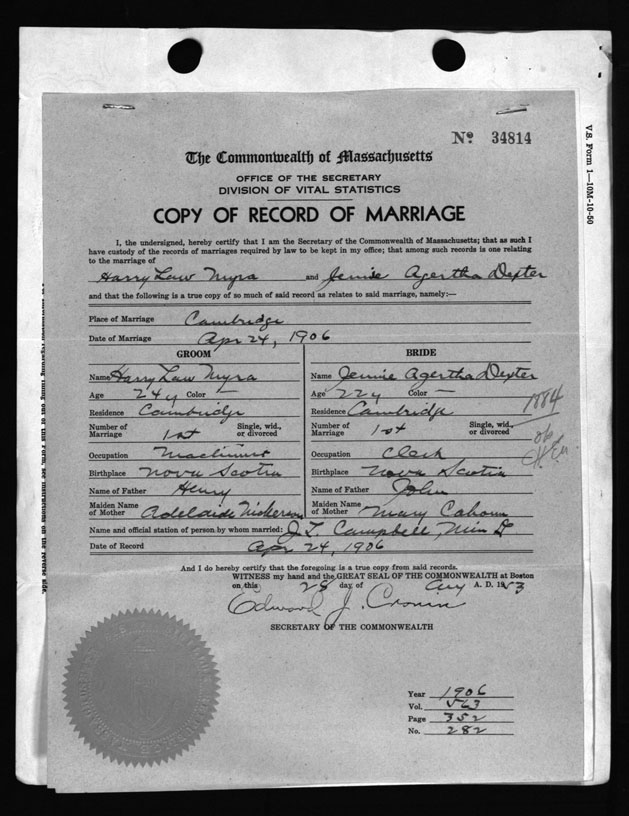 Nº 34814
The Commonwealth of Massachusetts
OFFICE OF THE SECRETARY
DIVISION OF VITAL STATISTICS
COPY OF RECORD OF MARRIAGE
I, the undersigned, hereby certify that I am the Secretary of the Commonwealth of Massachusetts; that as such I
have custody of the records of marriages required by law to be kept in my office; that among such records is one relating
to the marriage of
Harry Law Myra and Jennie Agertha Dexter
and that the following is a true copy of so much of said record as relates to said marriage, namely:—
Place of Marriage Cambridge
Date of Marriage Apr 24, 1906
GROOM BRIDE
Name Harry Law Myra Name Jennie Agertha Dexter
Age 24 y Color — Age 22 y Color — 1884
Residence Cambridge Residence Cambridge
Number of Marriage 1st Single, wid., or divorced Number of Marriage 1st Single, wid., or divorced
Occupation Machinist Occupation Clerk
Birthplace Nova Scotia Birthplace Nova Scotia
Name of Father Henry Name of Father John
Maiden Name of Mother Adelaide Nickerson Maiden Name of Mother Mary Cahoun
Name and official station of person by whom married: J. L. Campbell, Min
Date of Record Apr 24, 1906
And I do hereby certify that the foregoing is a true copy from said records.
WITNESS my hand and the GREAT SEAL OF THE COMMONWEALTH at Boston
on this 28 day of Aug A. D. 1953
Edward J. Cronin
SECRETARY OF THE COMMONWEALTH
Year 1906
Vol. 563
Page 352
No. 282
V.S. Form 1—10M-10-50